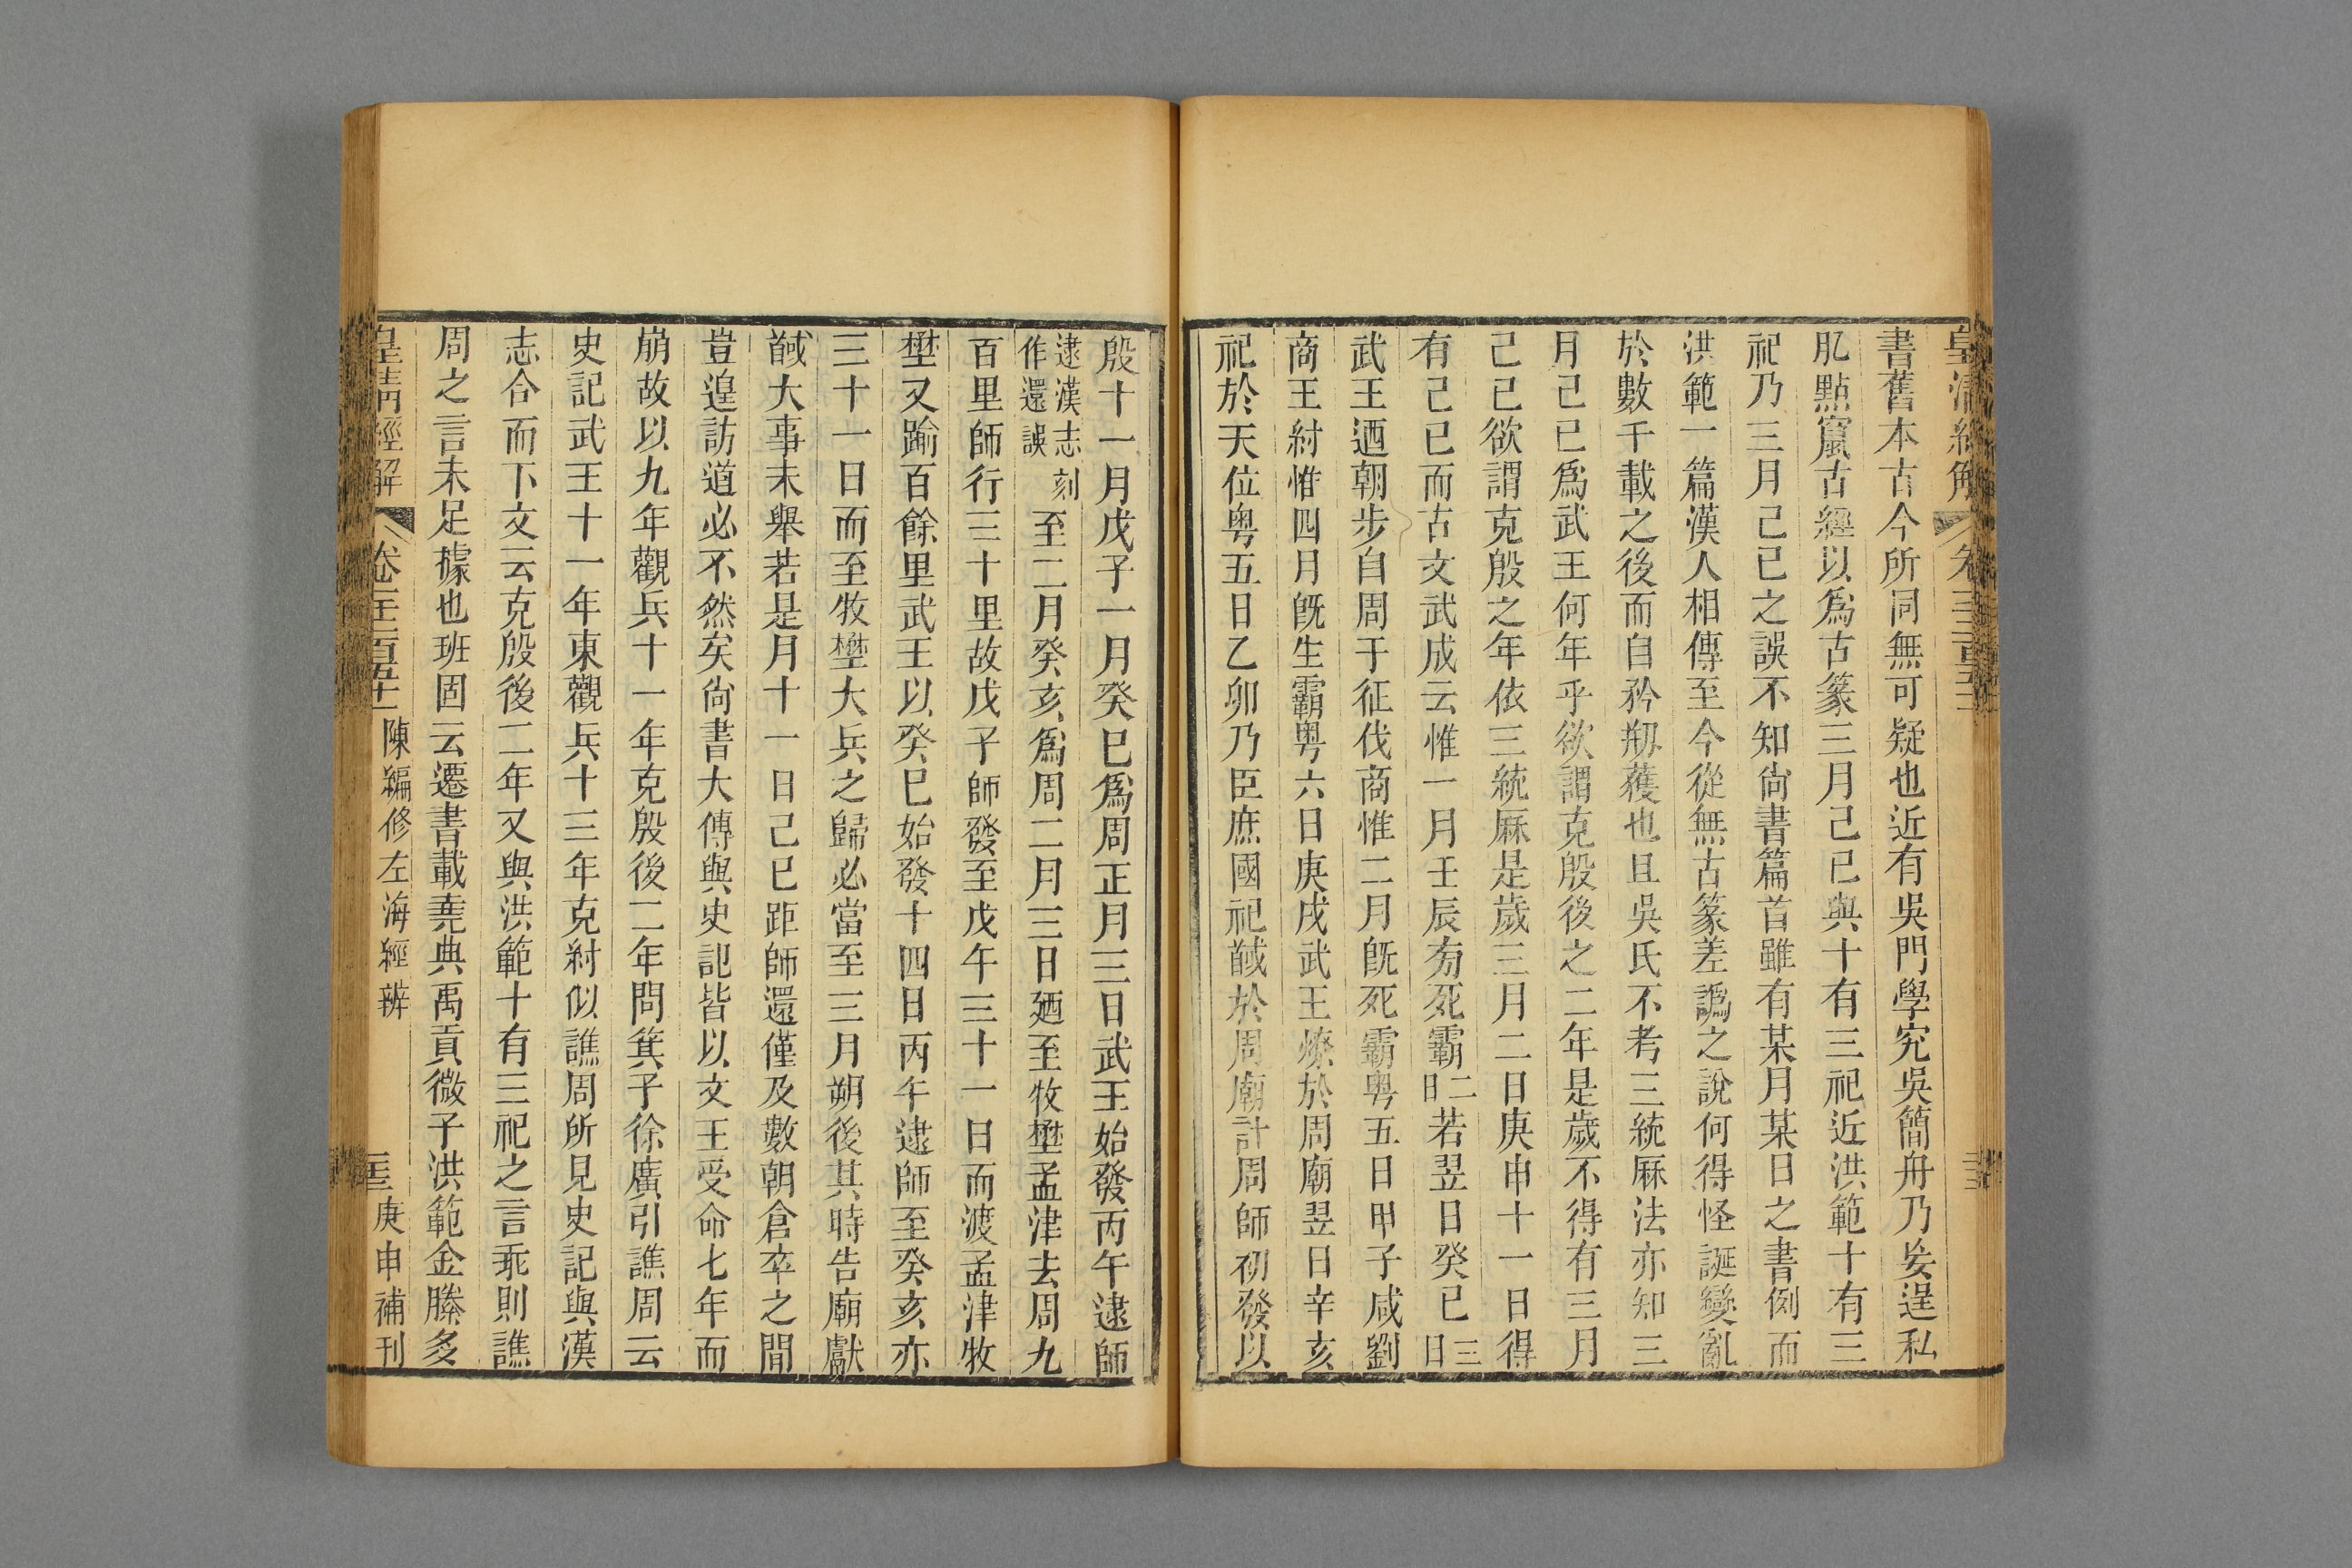 皇清經解 卷千二百五十一 二十三
書舊本古今所同無可疑也近有吳門學究吳簡舟乃妄逞私
肊點竄古經以爲古篆三月己巳與十有三祀近洪範十有三
祀乃三月己巳之誤不知尙書篇首雖有某月某日之書例而
洪範一篇漢人相傳至今從無古篆差譌之說何得怪誕變亂
於數千載之後而自矜剏蒦也且吳氏不考三統厤法亦知三
月己巳爲武王何年乎欲謂克殷後之二年是歲不得有三月
己巳欲謂克殷之年依三統厤是歲三月二日庚申十一日得
有己巳而古文武成云惟一月壬辰旁死霸二日若翌日癸巳三日
武王迺朝步自周于征伐商惟二月旣死霸粤五日甲子咸劉
商王紂惟四月旣生霸粤六日庚戌武王燎於周廟翌日辛亥
祀於天位粤五日乙卯乃臣庶國祀馘於周廟計周師初發以
殷十一月戊子一月癸巳爲周正月三日武王始發丙午逮師
逮漢志刻作還誤至二月癸亥爲周二月三日廼至牧壄孟津去周九
百里師行三十里故戊子師發至戊午三十一日而渡孟津牧
壄又踰百餘里武王以癸巳始發十四日丙午逮師至癸亥亦
三十一日而至牧壄大兵之歸必當至三月朔後其時告廟獻
馘大事未舉若是月十一日己巳距師還僅及數朝倉卒之間
豈遑訪道必不然矣尙書大傳與史記皆以文王受命七年而
崩故以九年觀兵十一年克殷後二年問箕子徐廣引譙周云
史記武王十一年東觀兵十三年克紂似譙周所見史記與漢
志合而下文云克殷後二年又與洪範十有三祀之言乖則譙
周之言未足據也班固云遷書載堯典禹貢微子洪範金縢多
皇清經解 卷千二百五十一 陳編修左海經辨 二十三 庚申補刊